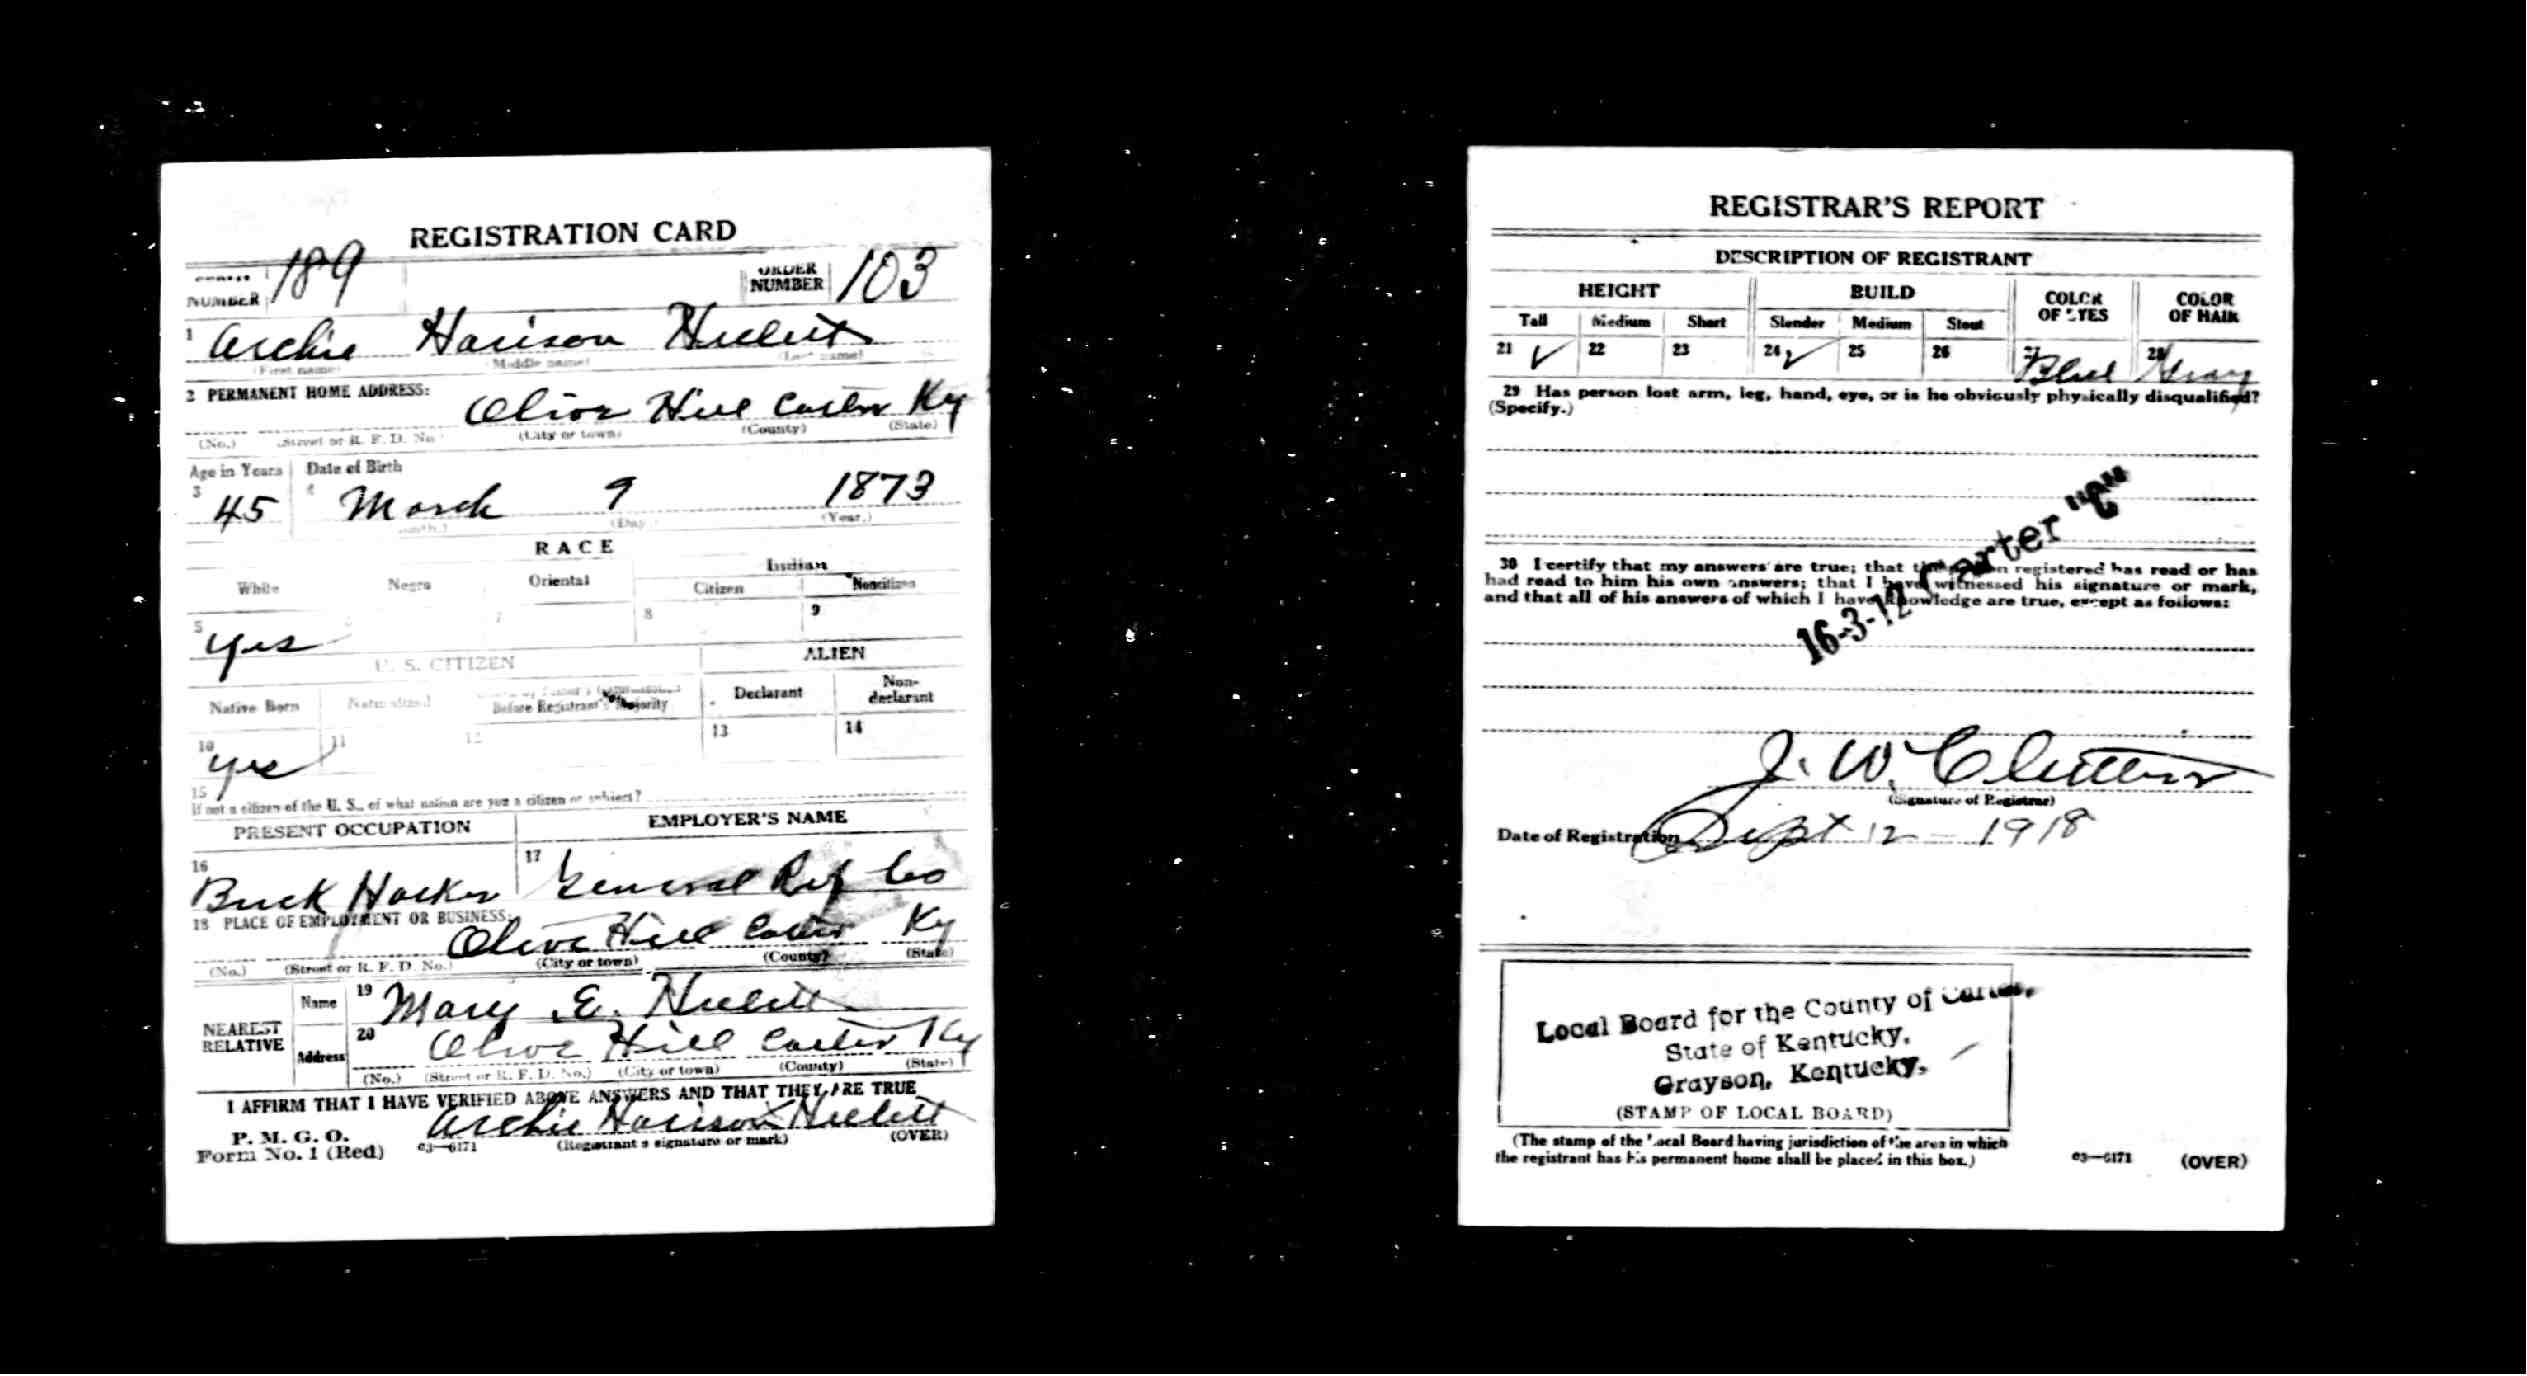 REGISTRATION CARD
NUMBER 189 ORDER NUMBER 103
1 Archie Harison
(First name) (Middle name) (Last name)
2 PERMANENT HOME ADDRESS:
Olive Hill Carter Ky
(No.) (Street or R. F. D. No.) (City or town) (County) (State)
Age in Years Date of Birth
3 45 4 March 9 1873
(Month.) (Day.) (Year.)
RACE
White Negro Oriental Indian
Citizen Noncitizen
5 Yes 7 8 9
U. S. CITIZEN ALIEN
Native Born Naturalized Citizen by Father's Naturalization Before Registrant's Majority Declarant Non-declarant
10 yes 11 12 13 14
15
If not a citizen of the U. S., of what nation are you a citizen or subject?
PRESENT OCCUPATION EMPLOYER'S NAME
16 17
General Ref Co
18 PLACE OF EMPLOYMENT OR BUSINESS:
Olive Hill Carter Ky
(No.) (Street or R. F. D. No.) (City or town) (County) (State)
NEAREST RELATIVE
Name 19 Mary E.
Address 20 Olive Hill Carter Ky
(No.) (Street or R. F. D. No.) (City or town) (County) (State)
I AFFIRM THAT I HAVE VERIFIED ABOVE ANSWERS AND THAT THEY ARE TRUE
Archie Harison
P. M. G. O.
Form No. 1 (Red) 03—6171 (Registrant's signature or mark) (OVER)
REGISTRAR'S REPORT
DESCRIPTION OF REGISTRANT
HEIGHT BUILD COLOR OF EYES COLOR OF HAIR
Tall Medium Short Slender Medium Stout
21 ✓ 22 23 24 ✓ 25 26 27 Blue 28 Gray
29 Has person lost arm, leg, hand, eye, or is he obviously physically disqualified?
(Specify.)
30 I certify that my answers are true; that the person registered has read or has
had read to him his own answers; that I have witnessed his signature or mark,
and that all of his answers of which I have knowledge are true, except as follows:
16-3-12 Carter "C"
J. W.
(Signature of Registrar)
Date of Registration Sept 12 - 1918
Local Board for the County of Carter,
State of Kentucky.
Grayson, Kentucky.
(STAMP OF LOCAL BOARD)
(The stamp of the Local Board having jurisdiction of the area in which
the registrant has his permanent home shall be placed in this box.)
03—6171 (OVER)